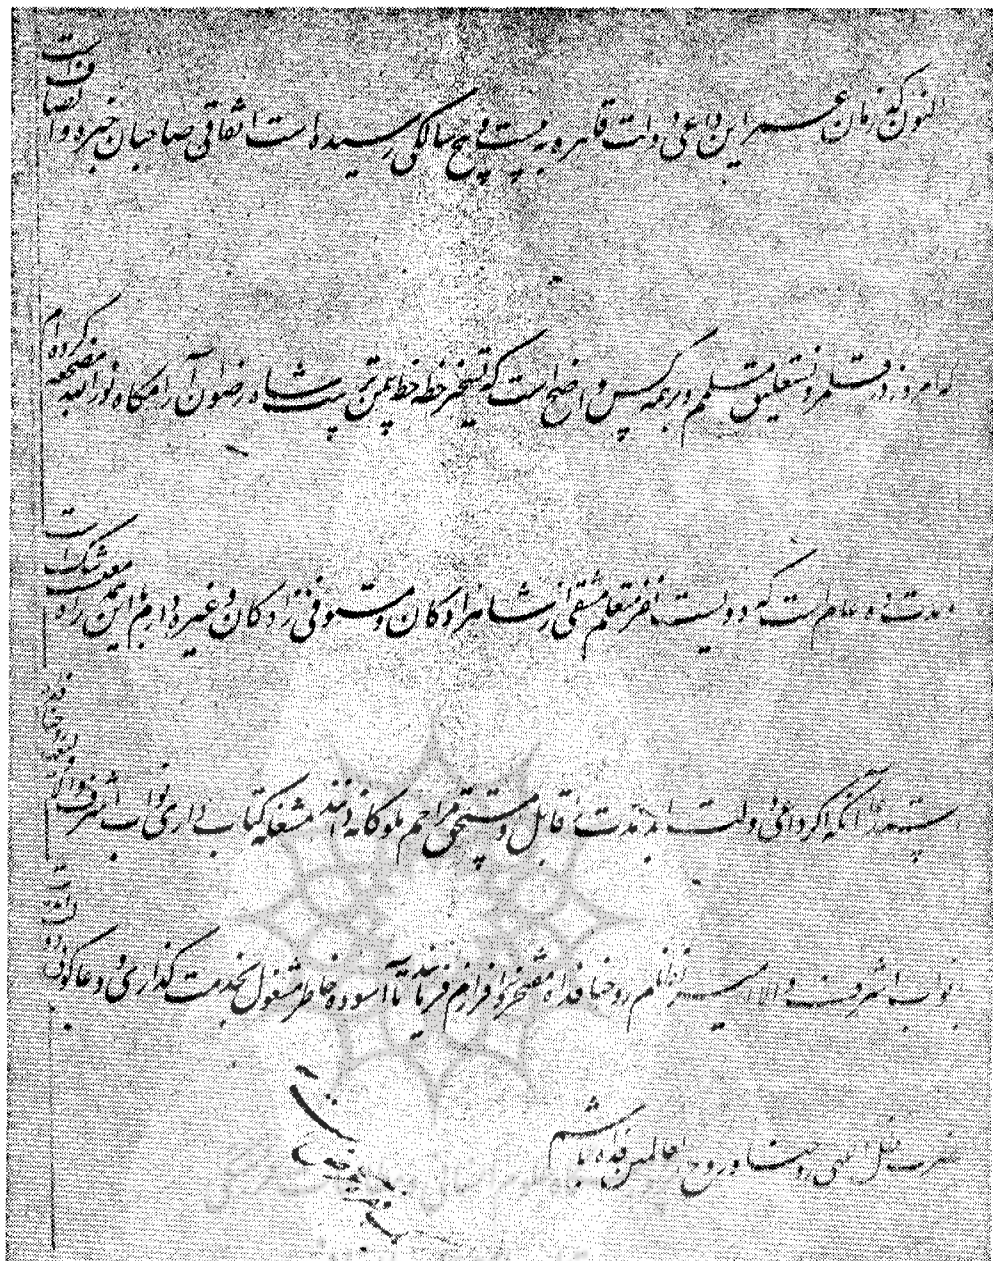 اکنون که زمان عمر این داعی دولت قاهره به بیست و پنج سالگی رسیده است اتفاقی صاحبان خبره و انصاف است
که امروز در قلمرو نستعلیق مسلمم و بر همه کس واضح است که تسخیر خطه خط بیمن تربیت شاه رضوان آرامگاه نورالله مضجعه کرده‌ام
مدت ده عام است که دویست نفر متعلم مشقی از شاهزادگان و مستوفی زادگان و غیره دارم با این همه معیشت تنگ است
مستدعی آنکه اگر داعی دولت ابد مدت را قابل و مستحق مراحم ملوکانه دانند مشغله کتاب‌داری نواب اشرف والا
نواب اشرف والا امیر نظام روحنا فداه مفتخر و سرافرازم فرمایند تا آسوده خاطر مشغول بخدمت گذاری و دعاگوئی
حضرت ظل اللهی روحنا و روح العالمین فداه باشم